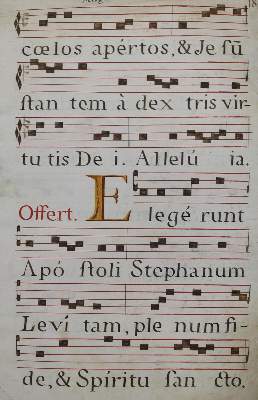 cœlos apértos, & Je sū
stan tem à dex tris vir-
tu tis De i. Allelú ia.
Offert. E legé runt
Apó stoli Stephanum
Leví tam, ple num fi-
de, & Spíritu san cto.